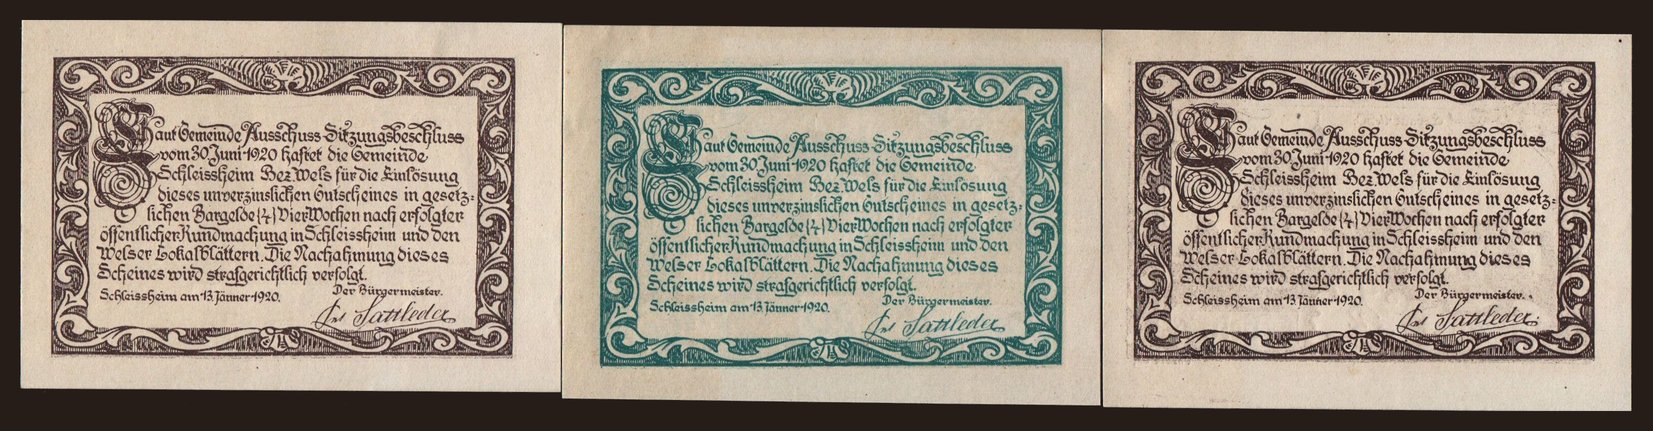 Laut Gemeinde Ausschuss-Sitzungsbeschluss
vom 30 Juni 1920 haftet die Gemeinde
Schleissheim Bez Wels für die Einlösung
dieses unverzinslichen Gutscheines in gesetz=
lichen Bargelde (4) Vier Wochen nach erfolgter
öffentlicher Kundmachung in Schleissheim und den
Welser Lokalblättern. Die Nachahmung dieses
Scheines wird strafgerichtlich verfolgt.
Schleissheim am 13. Jänner 1920. Der Bürgermeister.
Sattleder
Laut Gemeinde Ausschuss-Sitzungsbeschluss
vom 30 Juni 1920 haftet die Gemeinde
Schleissheim Bez Wels für die Einlösung
dieses unverzinslichen Gutscheines in gesetz=
lichen Bargelde (4) Vier Wochen nach erfolgter
öffentlicher Kundmachung in Schleissheim und den
Welser Lokalblättern. Die Nachahmung dieses
Scheines wird strafgerichtlich verfolgt.
Schleissheim am 13. Jänner 1920. Der Bürgermeister.
Sattleder
Laut Gemeinde Ausschuss-Sitzungsbeschluss
vom 30 Juni 1920 haftet die Gemeinde
Schleissheim Bez Wels für die Einlösung
dieses unverzinslichen Gutscheines in gesetz=
lichen Bargelde (4) Vier Wochen nach erfolgter
öffentlicher Kundmachung in Schleissheim und den
Welser Lokalblättern. Die Nachahmung dieses
Scheines wird strafgerichtlich verfolgt.
Schleissheim am 13. Jänner 1920. Der Bürgermeister.
Sattleder